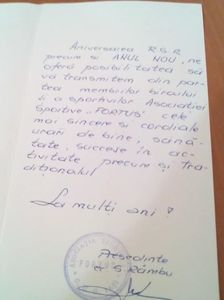 Aniversarea R.S.R.
precum si ANUL NOU, ne
oferă posibilitatea să
vă transmitem din par-
tea membrilor biroului
și a sportivilor Asociației
Sportive „FORTUS" cele
mai sincere si cordiale
urări de bine, sănă-
tate, succese în ac-
tivitate precum și tra-
diționalul
La mulți ani !
Președinte
S. Râmbu